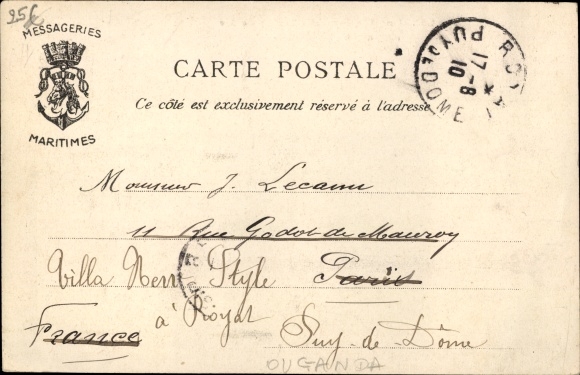 25f
MESSAGERIES
MARITIMES
CARTE POSTALE
Ce côté est exclusivement réservé à l'adresse
ROYAT
PUY DE DOME
17-8
10
Monsieur J. Lecann
11 Rue Godot de Mauroy
Villa New Style Paris
France à Royat Puy-de-Dôme
OUGANDA